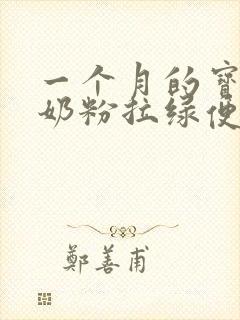 一个月的宝
奶粉拉绿便
鄭善甫